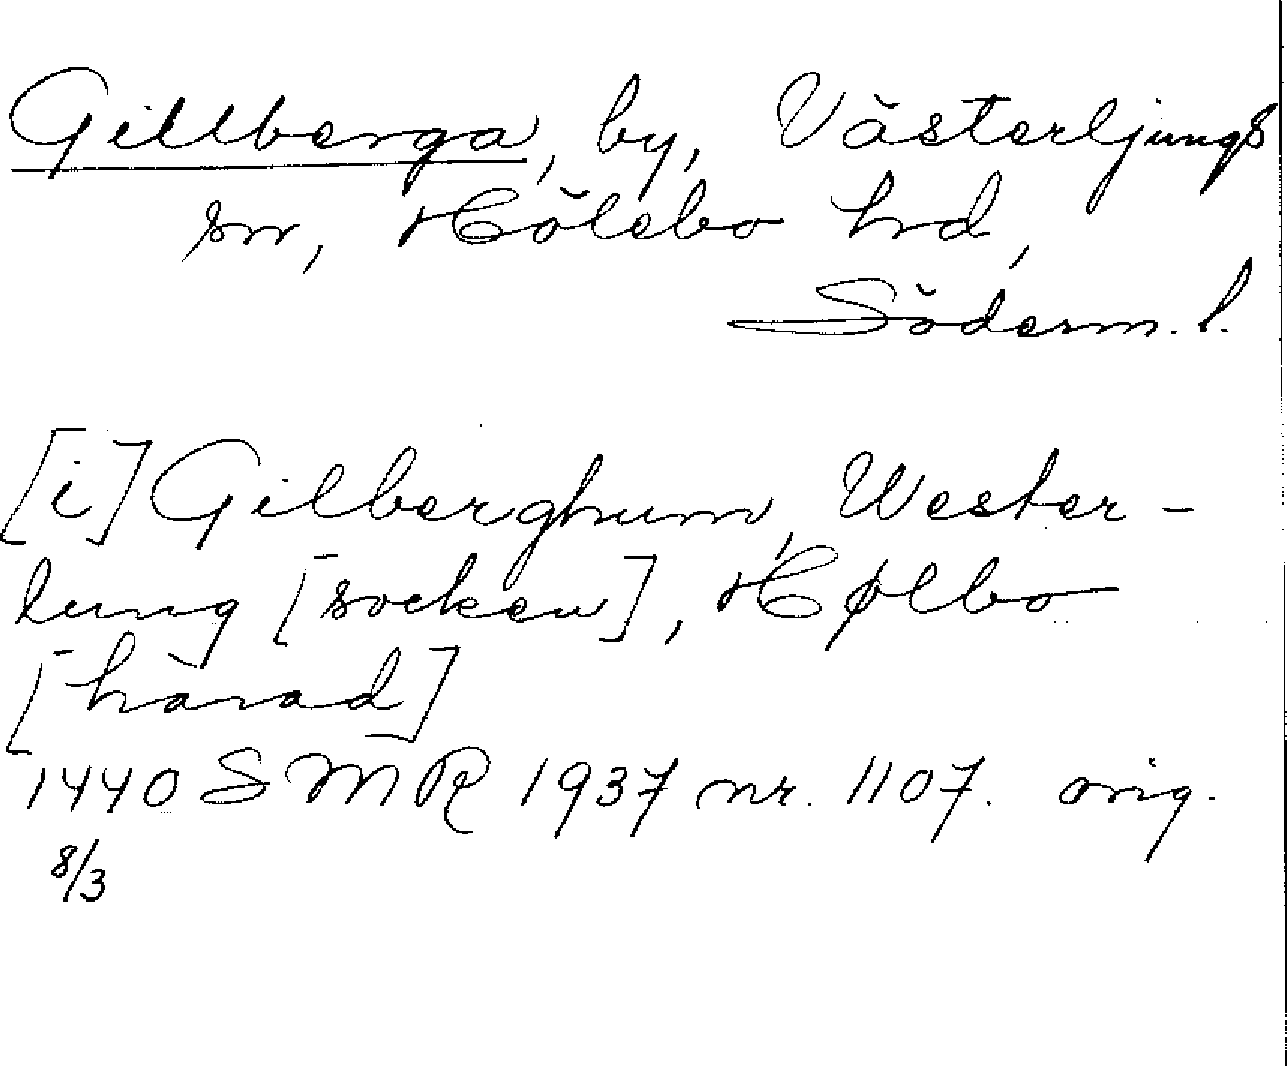 Gillberga, by, Västerljungs
sn, Hölebo hd,
Söderm. l.
[i] Gilberghum, Wester-
lung [socken], Hølbo
[härad]
1440 SMR 1937 nr. 1107. orig.
8/3